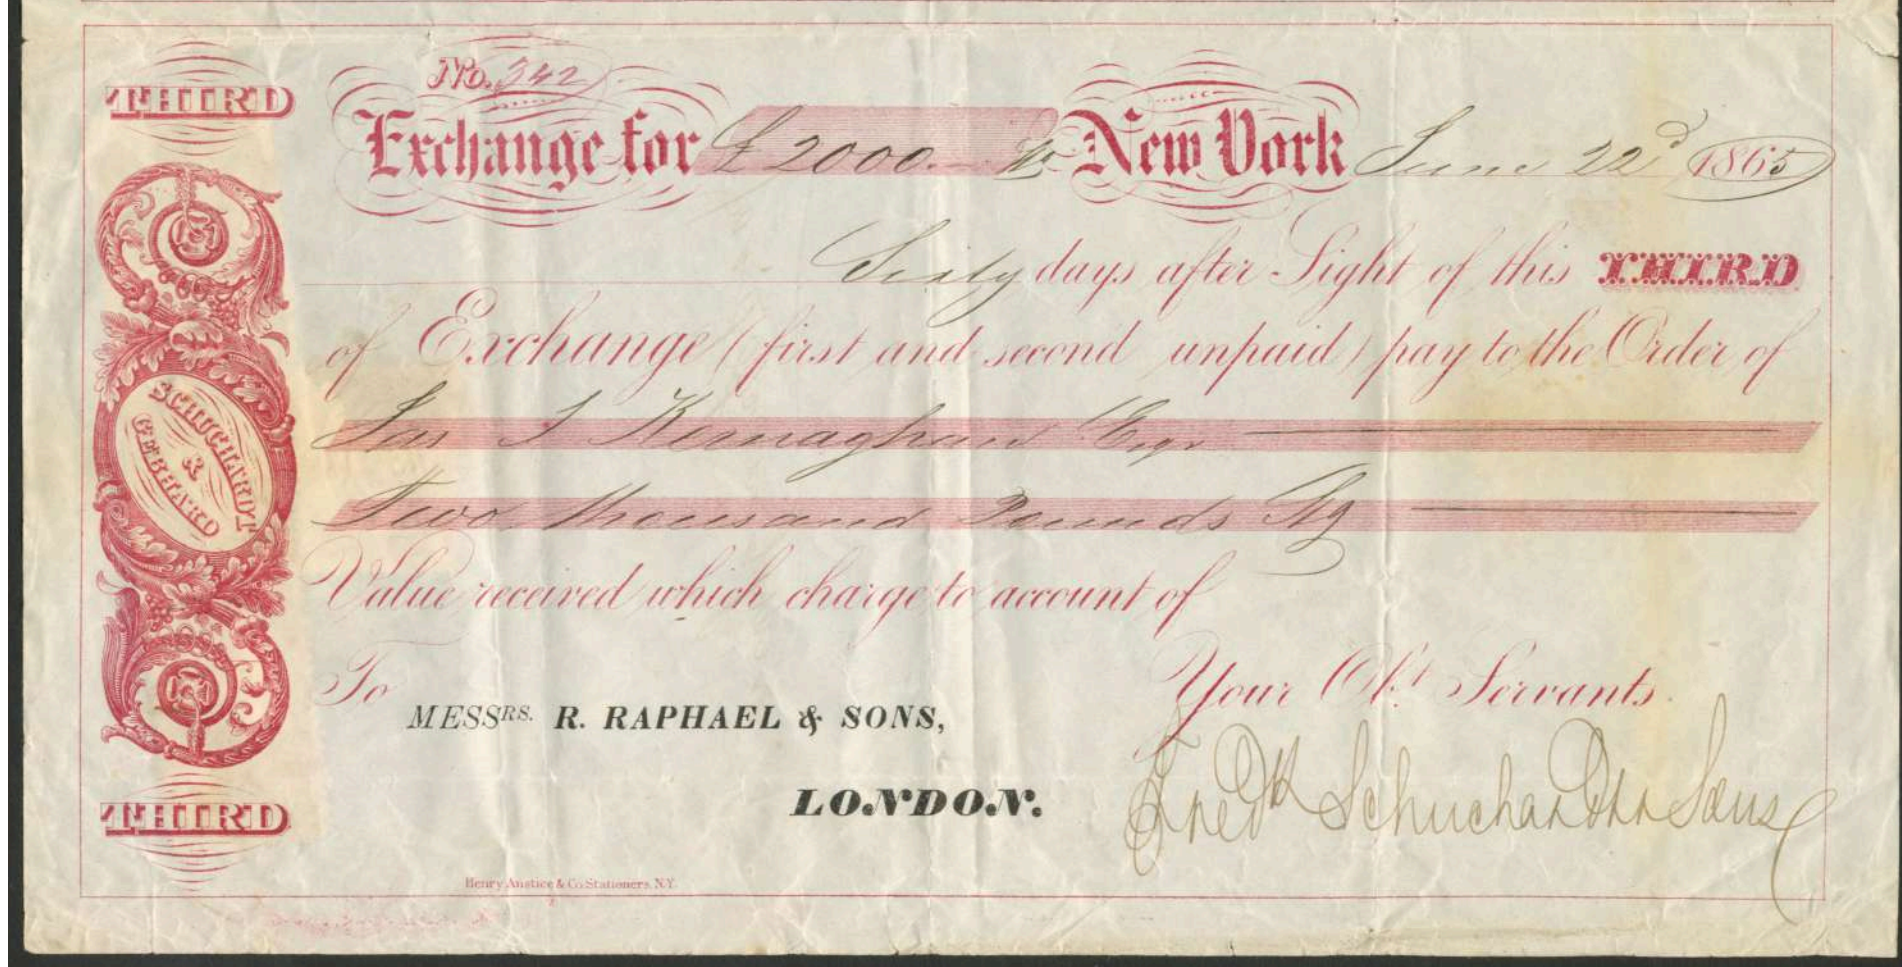 THIRD
No. 342
Exchange for £2000.- New York June 22d 1865
Sixty days after Sight of this THIRD
of Exchange (first and second unpaid) pay to the Order of
Jas Kernaghan Esqr
Two thousand Pounds Stg
Value received which charge to account of
SCHUCHARDT
&
GEBHARD
To
MESSRS. R. RAPHAEL & SONS,
LONDON.
Your Obt. Servants.
Fredk Schuchardt & Sons
THIRD
Henry Anstice & Co. Stationers, N.Y.